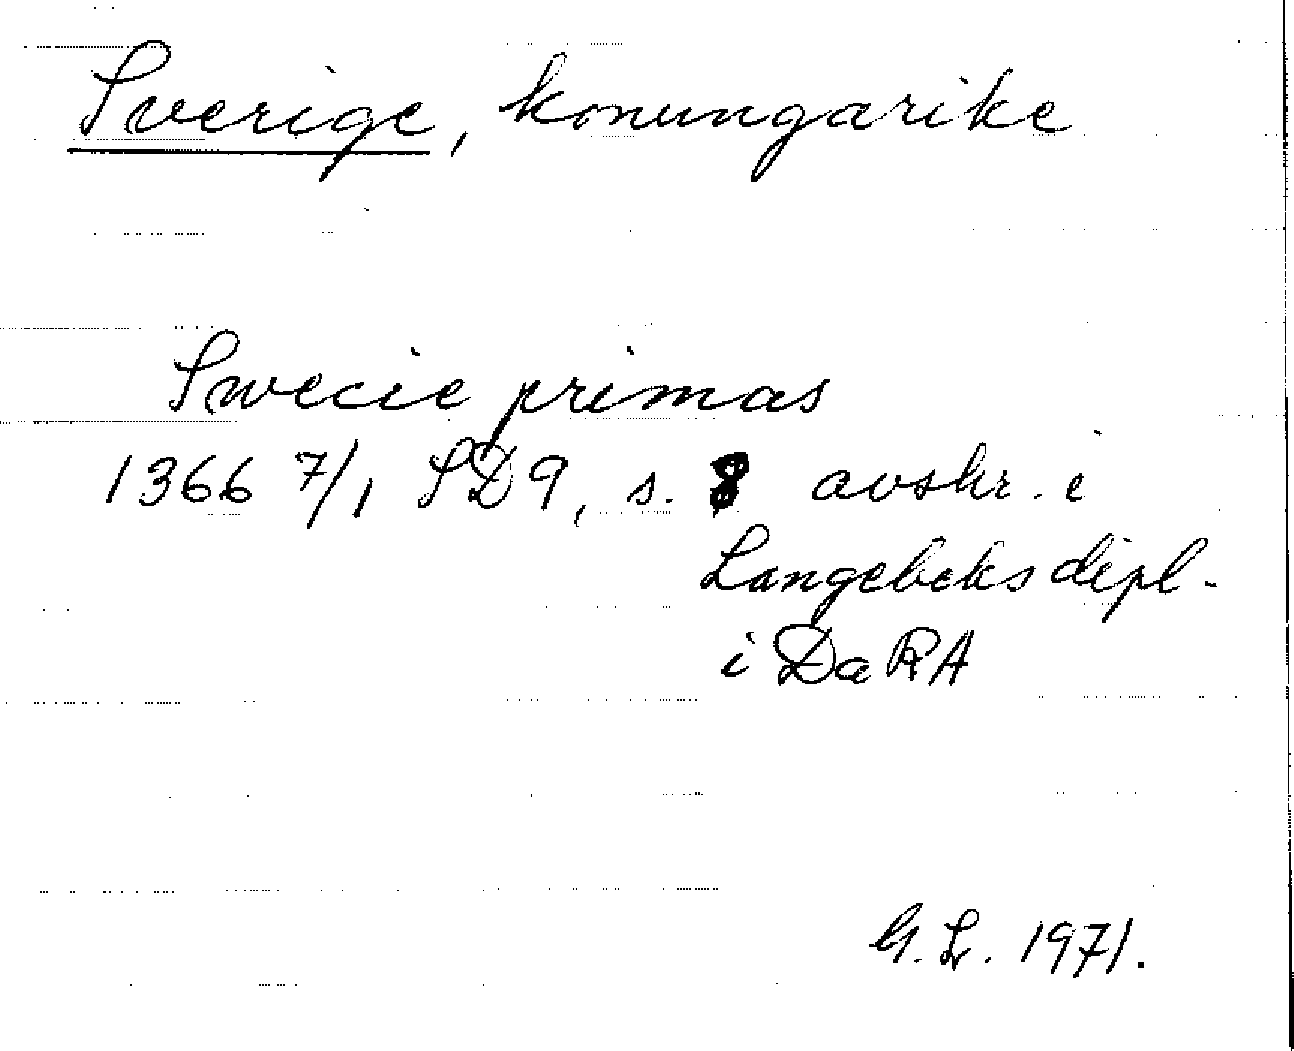 Sverige, konungarike
Swecie primas
1366 7/1 SD9, s. 8 avskr. i
Langebeks dipl.
i DaRA
G.L. 1971.